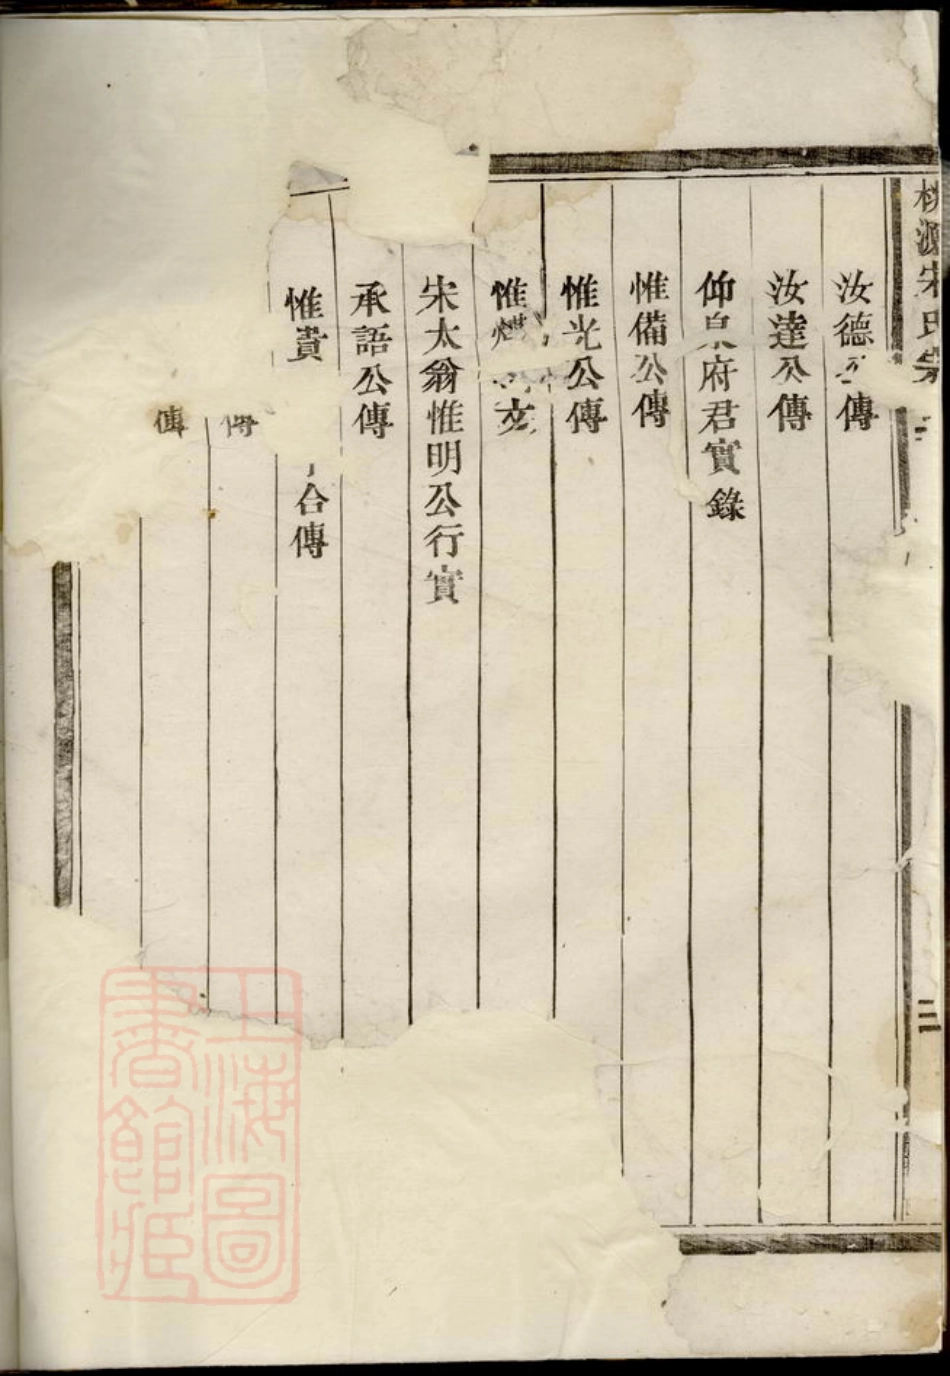 桃源宋氏宗
汝德公傳
汝達公傳
仰泉府君實錄
惟備公傳
惟光公傳
惟
宋太翁惟明公行實
承語公傳
惟貴
合傳
傳
傳
二
上海圖書館藏